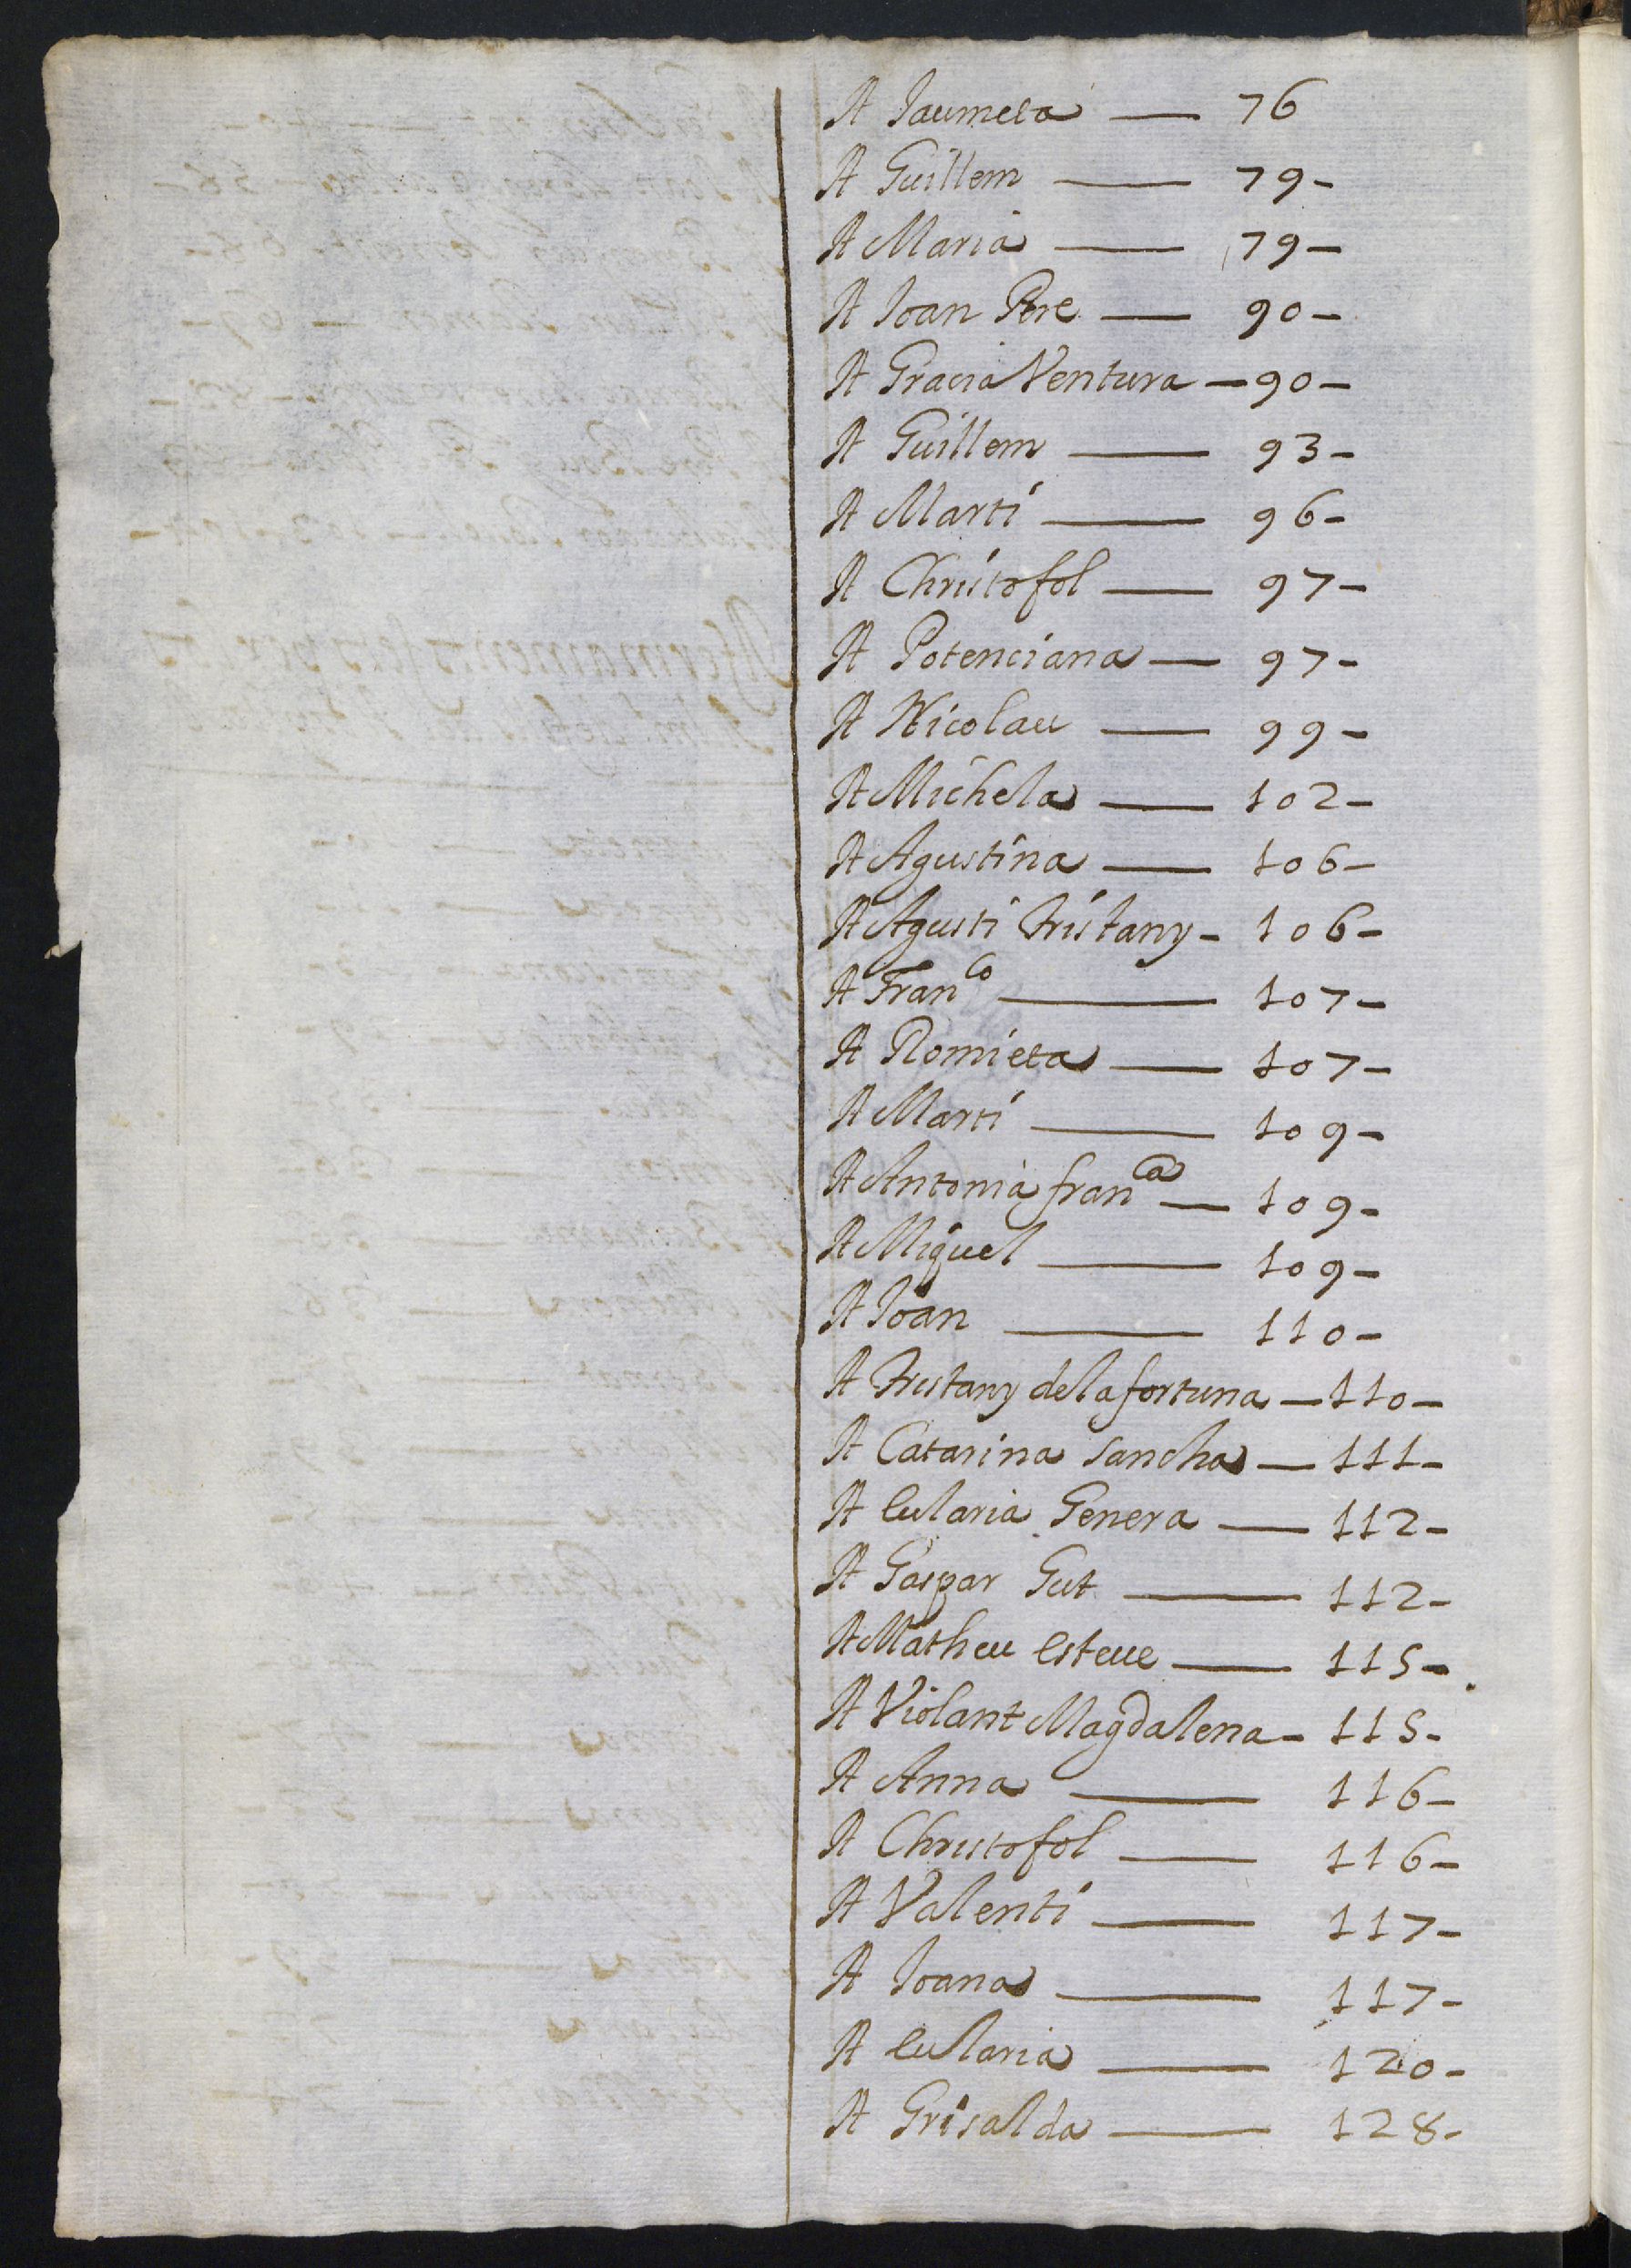 A Jaumeta — 76
A Guillem — 79-
A Maria — 79-
A Joan Pere — 90-
A Gracia Ventura — 90-
A Guillem — 93-
A Marti — 96-
A Christofol — 97-
A Potenciana — 97-
A Nicolau — 99-
A Michela — 102-
A Agustina — 106-
A Agusti Tristany - 106-
A Franco — 107-
A Romieta — 107-
A Marti — 109-
A Antonia franca — 109-
A Miquel — 109-
A Joan — 110-
A Tristany de la fortuna — 110-
A Catarina Sancha — 111-
A Eularia Genera — 112-
A Gaspar Gut — 112-
A Matheu Esteue — 115-
A Violant Magdalena - 115-
A Anna — 116-
A Christofol — 116-
A Valenti — 117-
A Joana — 117-
A Eularia — 120-
A Grisalda — 128-